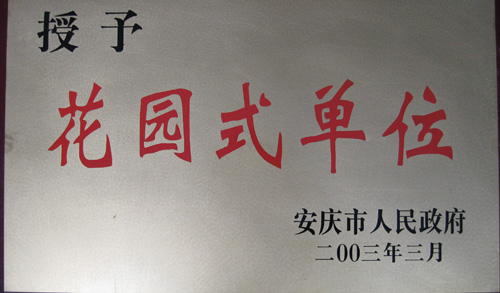 授予
花园式单位
安庆市人民政府
二00三年三月